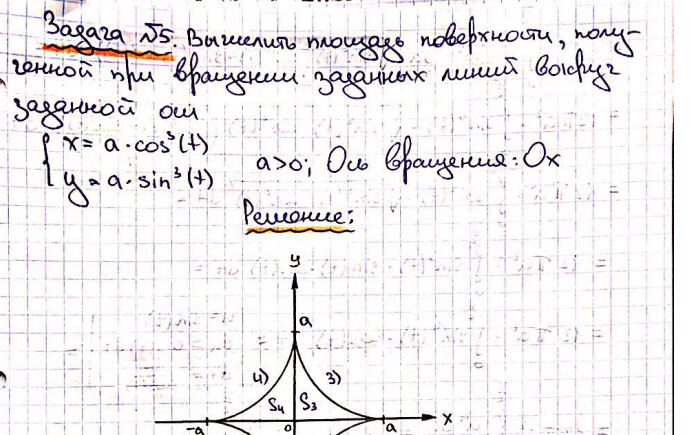 Задача №5. Вычислить площадь поверхности, полу-
ченной при вращении заданных линий вокруг
заданной оси
x = a · cos³(t)
y = a · sin³(t)
a>0; Ось вращения: Ox
Решение:
y
a
4) 3)
S₄ S₃
-a 0 a x